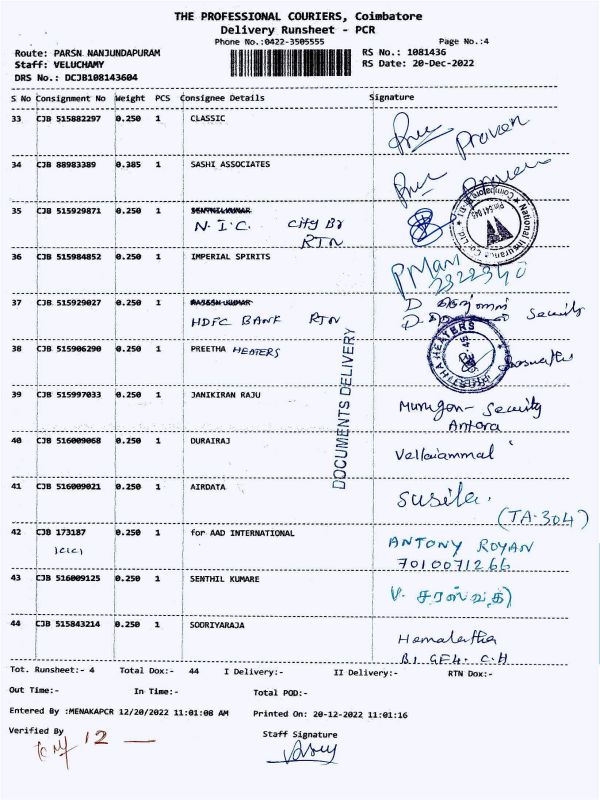 THE PROFESSIONAL COURIERS, Coimbatore
Delivery Runsheet - PCR
Phone No.:0422-3505555
Page No.:4
Route: PARSN NANJUNDAPURAM
RS No.: 1081436
Staff: VELUCHAMY
RS Date: 20-Dec-2022
DRS No.: DCJB108143604
S No Consignment No Weight PCS Consignee Details Signature
33 CJB 515882297 0.250 1 CLASSIC
Praveen
34 CJB 88983389 0.385 1 SASHI ASSOCIATES
35 CJB 515929871 0.250 1 SENTHILKUMAR
N.I.C. City Br
RTN
National Insurance Co. Ltd.
Coimbatore
36 CJB 515984852 0.250 1 IMPERIAL SPIRITS
PMani
2322340
37 CJB 515929027 0.250 1
HDFC BANK RTN
Security
38 CJB 515906290 0.250 1 PREETHA HEATERS
HEATERS
DOCUMENTS DELIVERY
39 CJB 515997033 0.250 1 JANIKIRAN RAJU
Murugan - Security
Antora
40 CJB 516009068 0.250 1 DURAIRAJ
Vellaiammal
41 CJB 516009021 0.250 1 AIRDATA
Susila.
(TA-304)
42 CJB 173187 0.250 1 for AAD INTERNATIONAL
ANTONY ROYAN
7010071266
43 CJB 516009125 0.250 1 SENTHIL KUMARE
V. சரஸ்வதி
44 CJB 515843214 0.250 1 SOORIYARAJA
Hemalatha
B1 GF4. C.H
Tot. Runsheet:- 4 Total Dox:- 44 I Delivery:- II Delivery:- RTN Dox:-
Out Time:- In Time:- Total POD:-
Entered By :MENAKAPCR 12/20/2022 11:01:08 AM Printed On: 20-12-2022 11:01:16
Verified By
Staff Signature
12 —